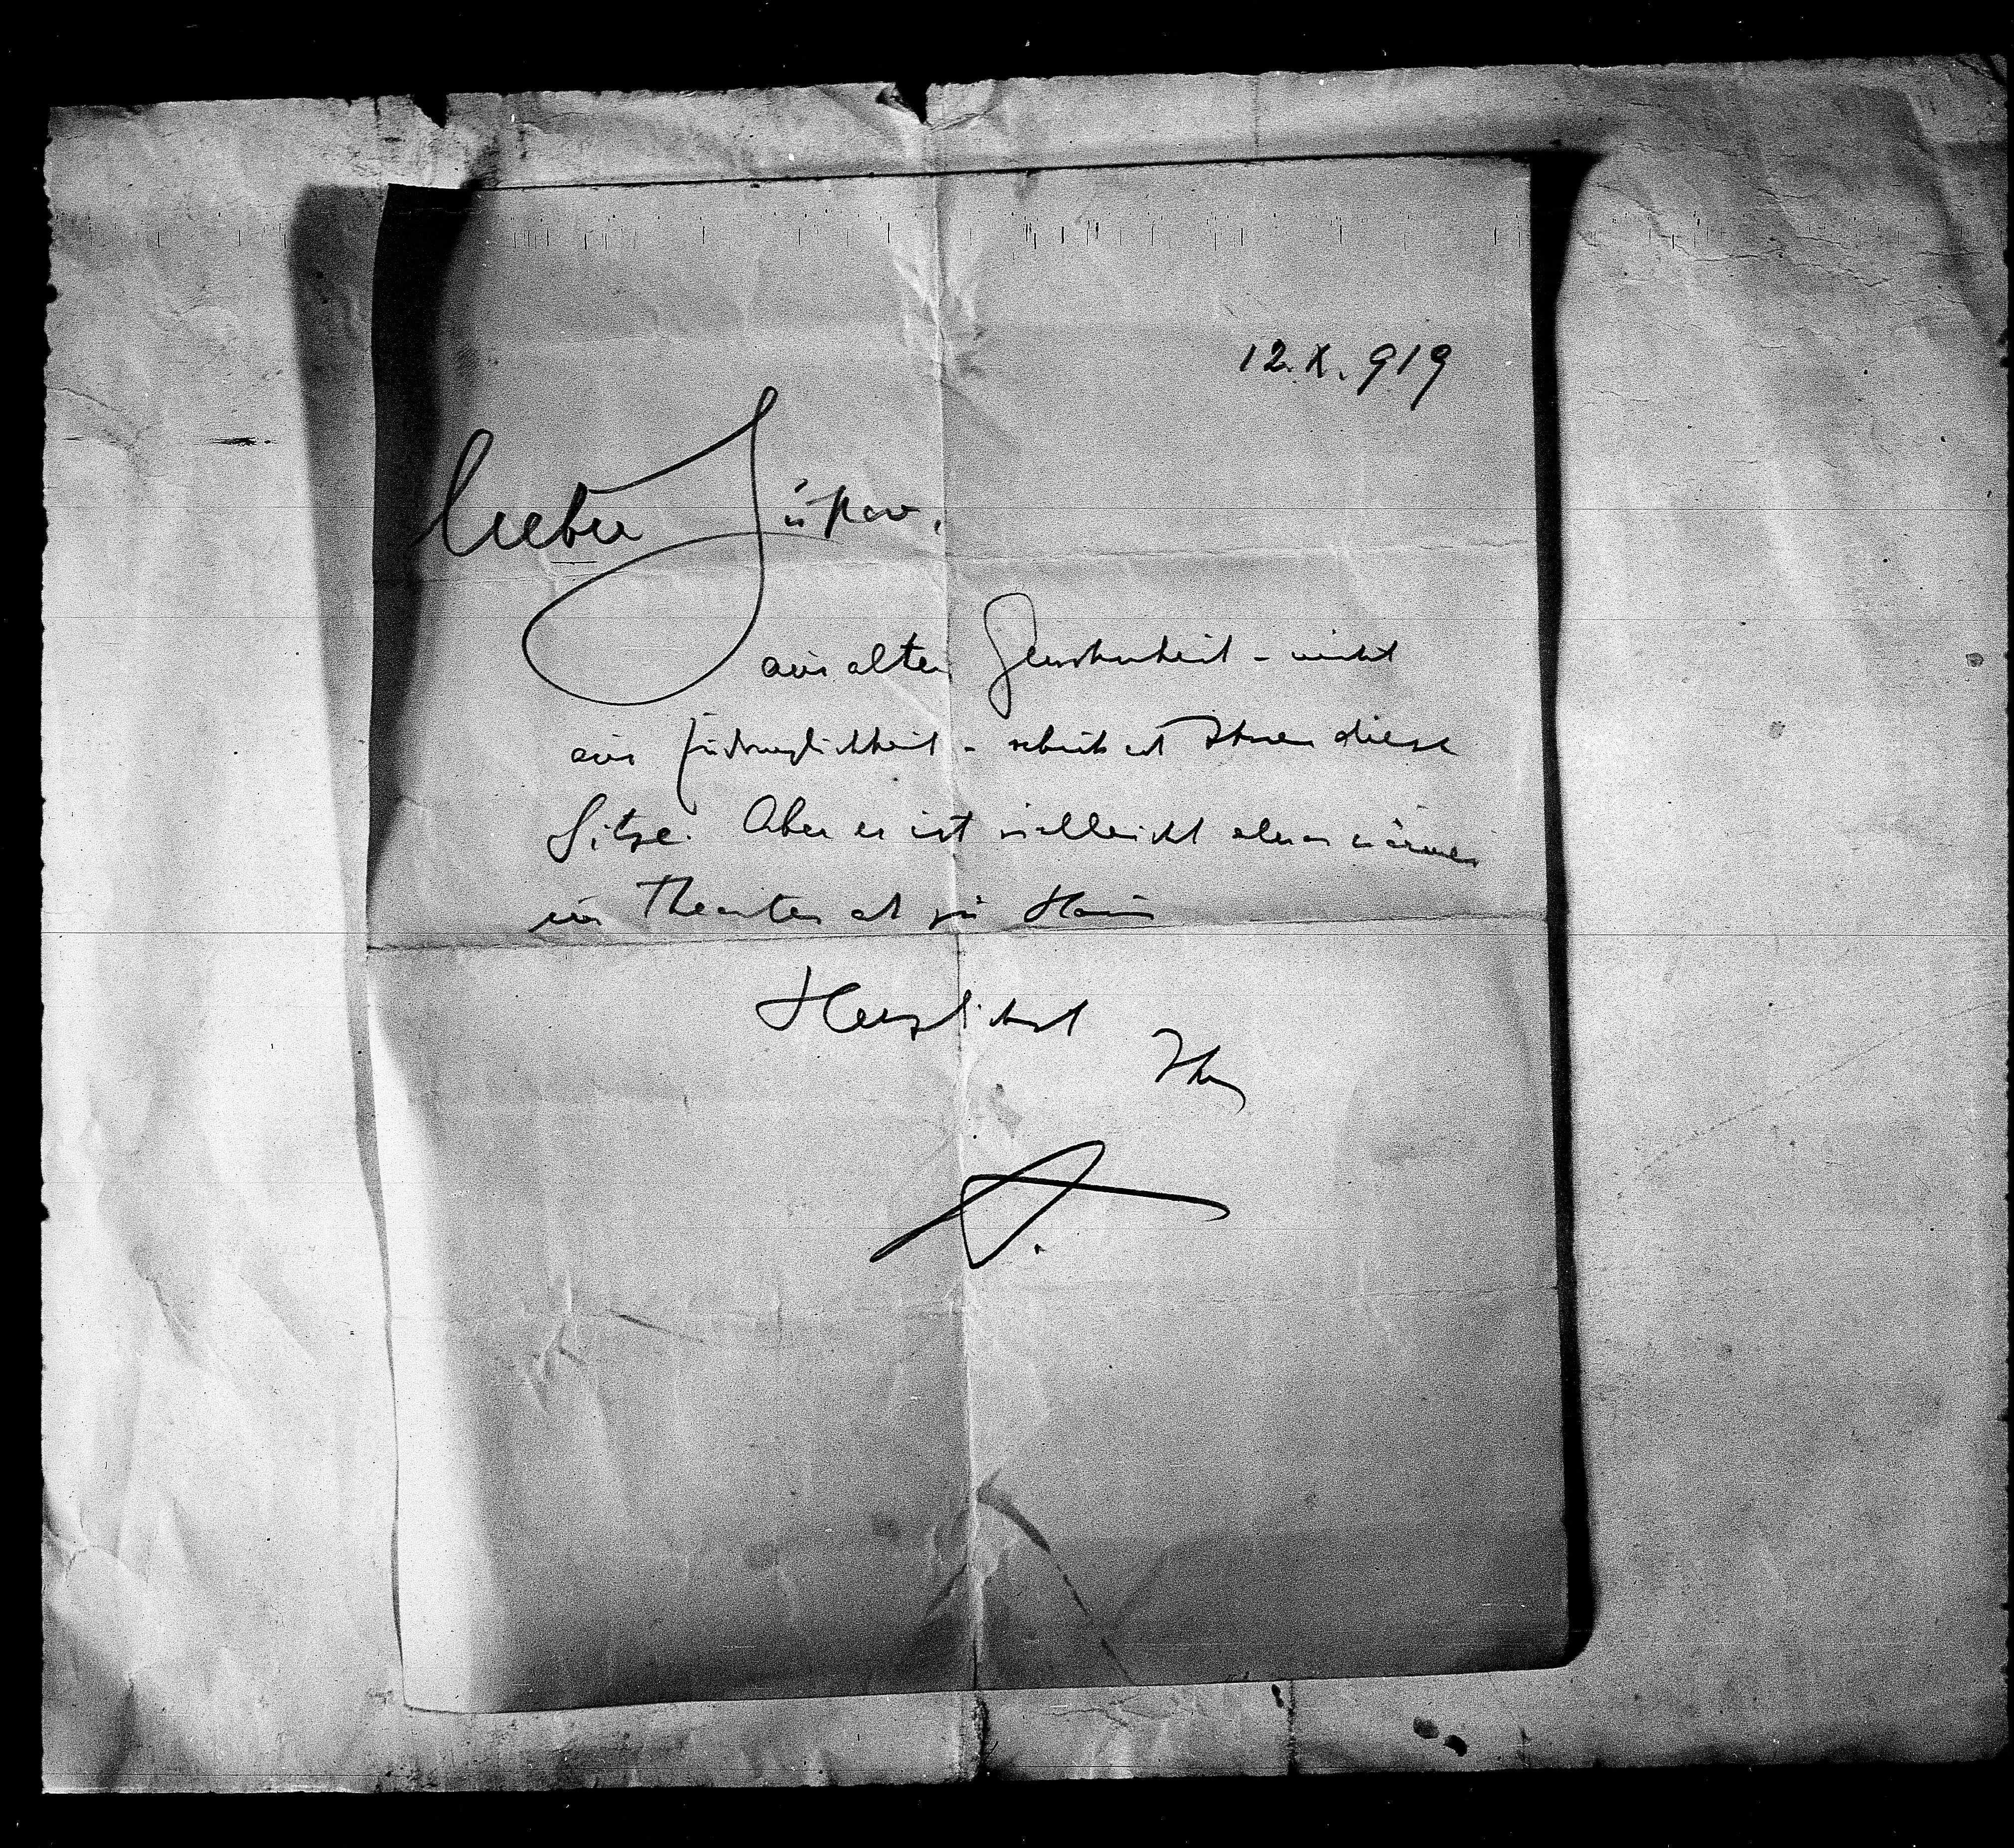 12.X.919
Lieber Gustav,
aus alter Gewohnheit – nicht
aus Zudringlichkeit – schick ich Ihnen diese
Sitze. Aber es ist vielleicht etwas wärmer
im Theater als zu Haus
Herzlichst
Ihr